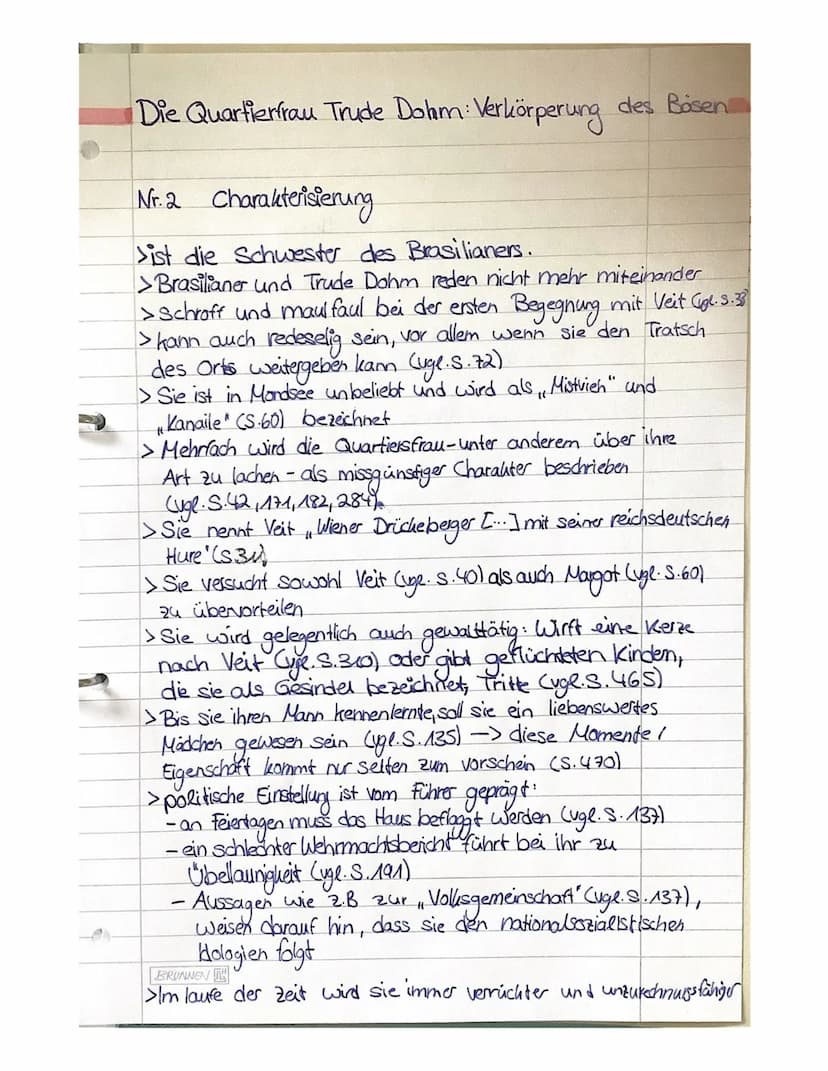 Die Quartierfrau Trude Dohm: Verkörperung des Bösen
Nr. 2 Charakterisierung
> ist die Schwester des Brasilianers.
> Brasilianer und Trude Dohm reden nicht mehr miteinander
> Schroff und maulfaul bei der ersten Begegnung mit Veit (vgl. S. 38
> kann auch redeselig sein, vor allem wenn sie den Tratsch
des Orts weitergeben kann (vgl. S. 72)
> Sie ist in Mondsee unbeliebt und wird als „Mistvieh" und
„Kanaile" (S. 60) bezeichnet
> Mehrfach wird die Quartiersfrau - unter anderem über ihre
Art zu lachen - als missgünstiger Charakter beschrieben
(vgl. S. 42, 171, 182, 284).
> Sie nennt Veit „Wiener Drückeberger [...] mit seiner reichsdeutschen
Hure" (S.
> Sie versucht sowohl Veit (vgl. S. 40) als auch Margot (vgl. S. 60)
zu übervorteilen
> Sie wird gelegentlich auch gewalttätig: Wirft eine Kerze
nach Veit (vgl. S. 310) oder gibt geflüchteten Kindern,
die sie als Gesindel bezeichnet, Tritte (vgl. S. 465)
> Bis sie ihren Mann kennenlernte, soll sie ein liebenswertes
Mädchen gewesen sein (vgl. S. 135) –> diese Momente /
Eigenschaft kommt nur selten zum vorschein (S. 470)
> politische Einstellung ist vom Führer geprägt:
- an Feiertagen muss das Haus beflaggt werden (vgl. S. 137)
- ein schlechter Wehrmachtsbericht führt bei ihr zu
Übellaunigkeit (vgl. S. 191)
- Aussagen wie z.B zur „Volksgemeinschaft" (vgl. S. 137),
weisen darauf hin, dass sie den nationalsozialistischen
Idologien folgt
BRUNNEN
> Im laufe der Zeit wird sie immer verrückter und unzurechnungsfähiger